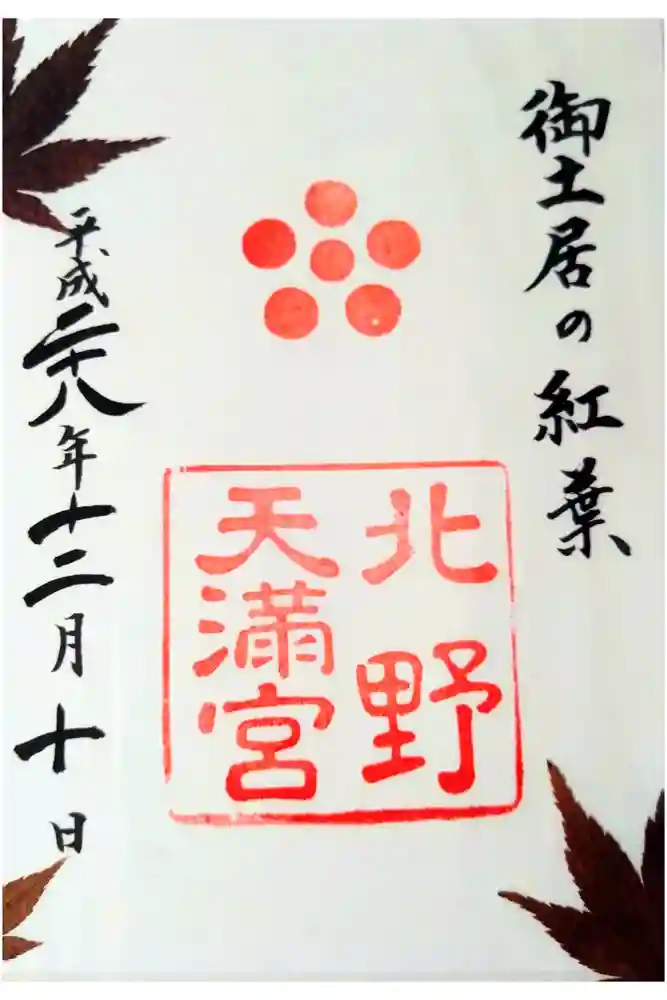 御土居の紅葉
北野
天満宮
平成二十八年十二月十日